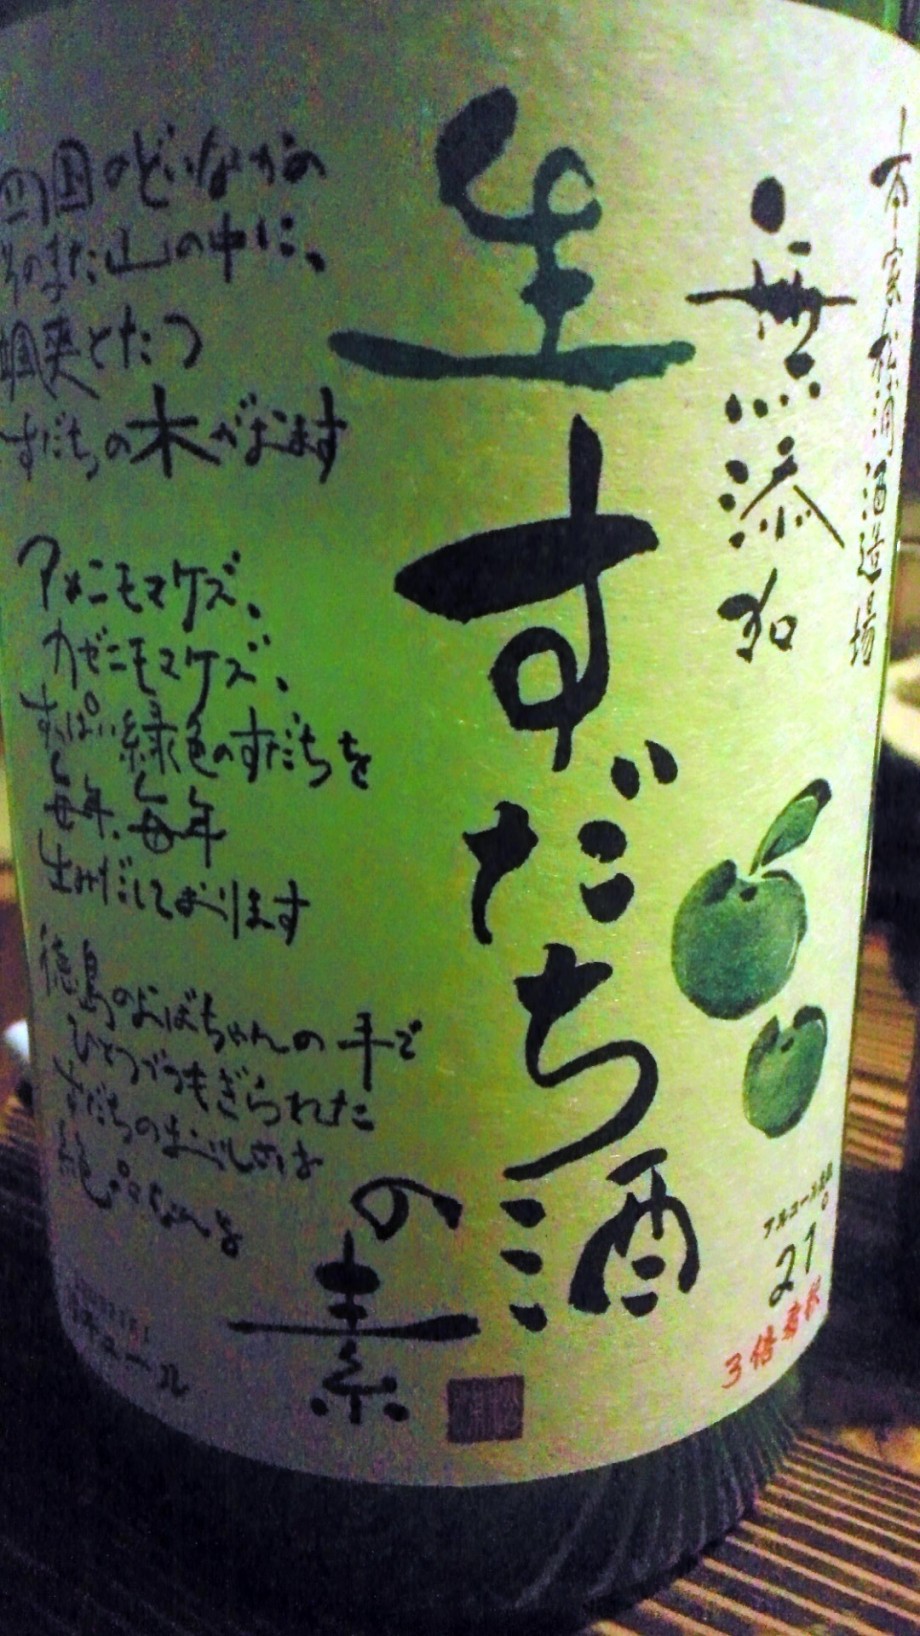 本家松浦酒造場
無添加
生すだち酒
の素
四国のどいなかの
そのまた山の中に、
颯爽とたつ
すだちの木があります
アメニモマケズ、
カゼニモマケズ、
すっぱい緑色のすだちを
毎年、毎年
生みだしております
徳島のおばちゃんの手で
ひとつづつもぎられた
すだちの生べしさは
絶品なんよ
リキュール
アルコール分
21°
3倍希釈